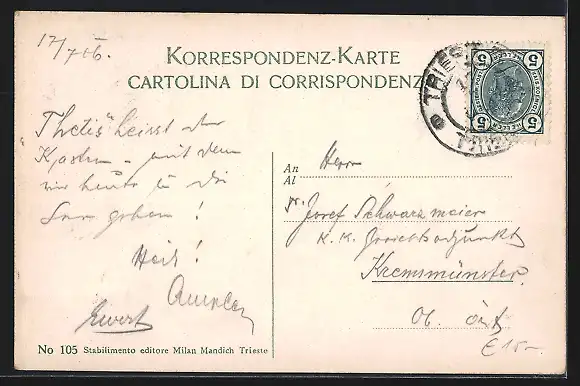 17/7 06.
KORRESPONDENZ-KARTE
CARTOLINA DI CORRISPONDENZA
TRIEST
5 5
5 5
„Thetis" heisst der
Kasten - mit dem
wir heute in die
See gehen!
Heil!
Ewert
An
Al
Herrn
Dr. Josef Schwarzmeier
K. K. Gerichtsadjunkt
Kremsmünster
Ob. öst.
€ 15.-
No 105 Stabilimento editore Milan Mandich Trieste